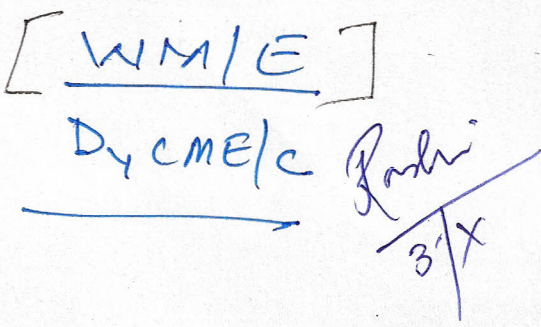 [WM/E]
Dy CME/C
3/X